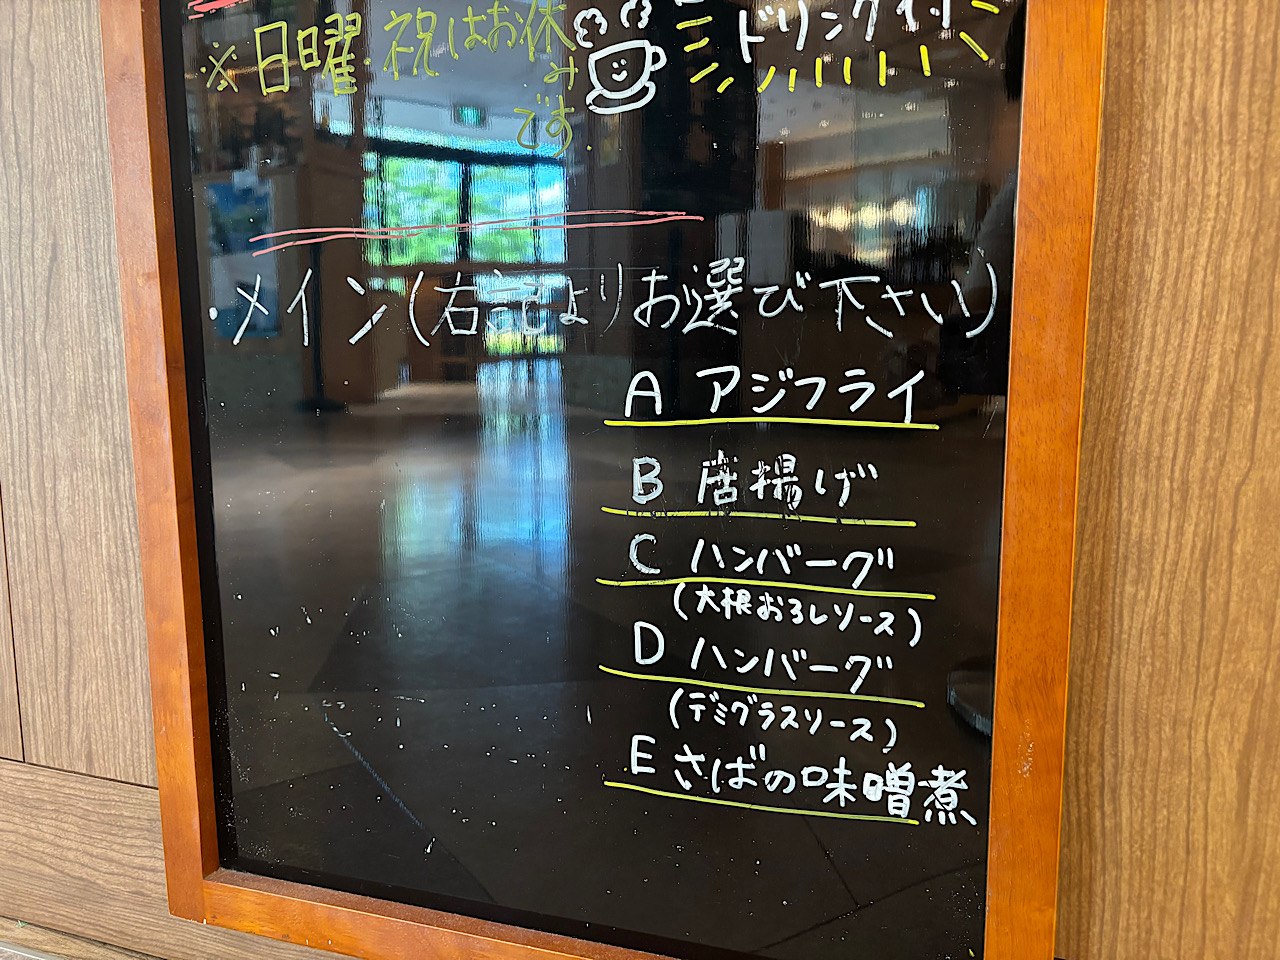 ドリンク付
※日曜.祝はお休みです.
・メイン(右記よりお選び下さい)
A アジフライ
B 唐揚げ
C ハンバーグ
(大根おろしソース)
D ハンバーグ
(デミグラスソース)
E さばの味噌煮